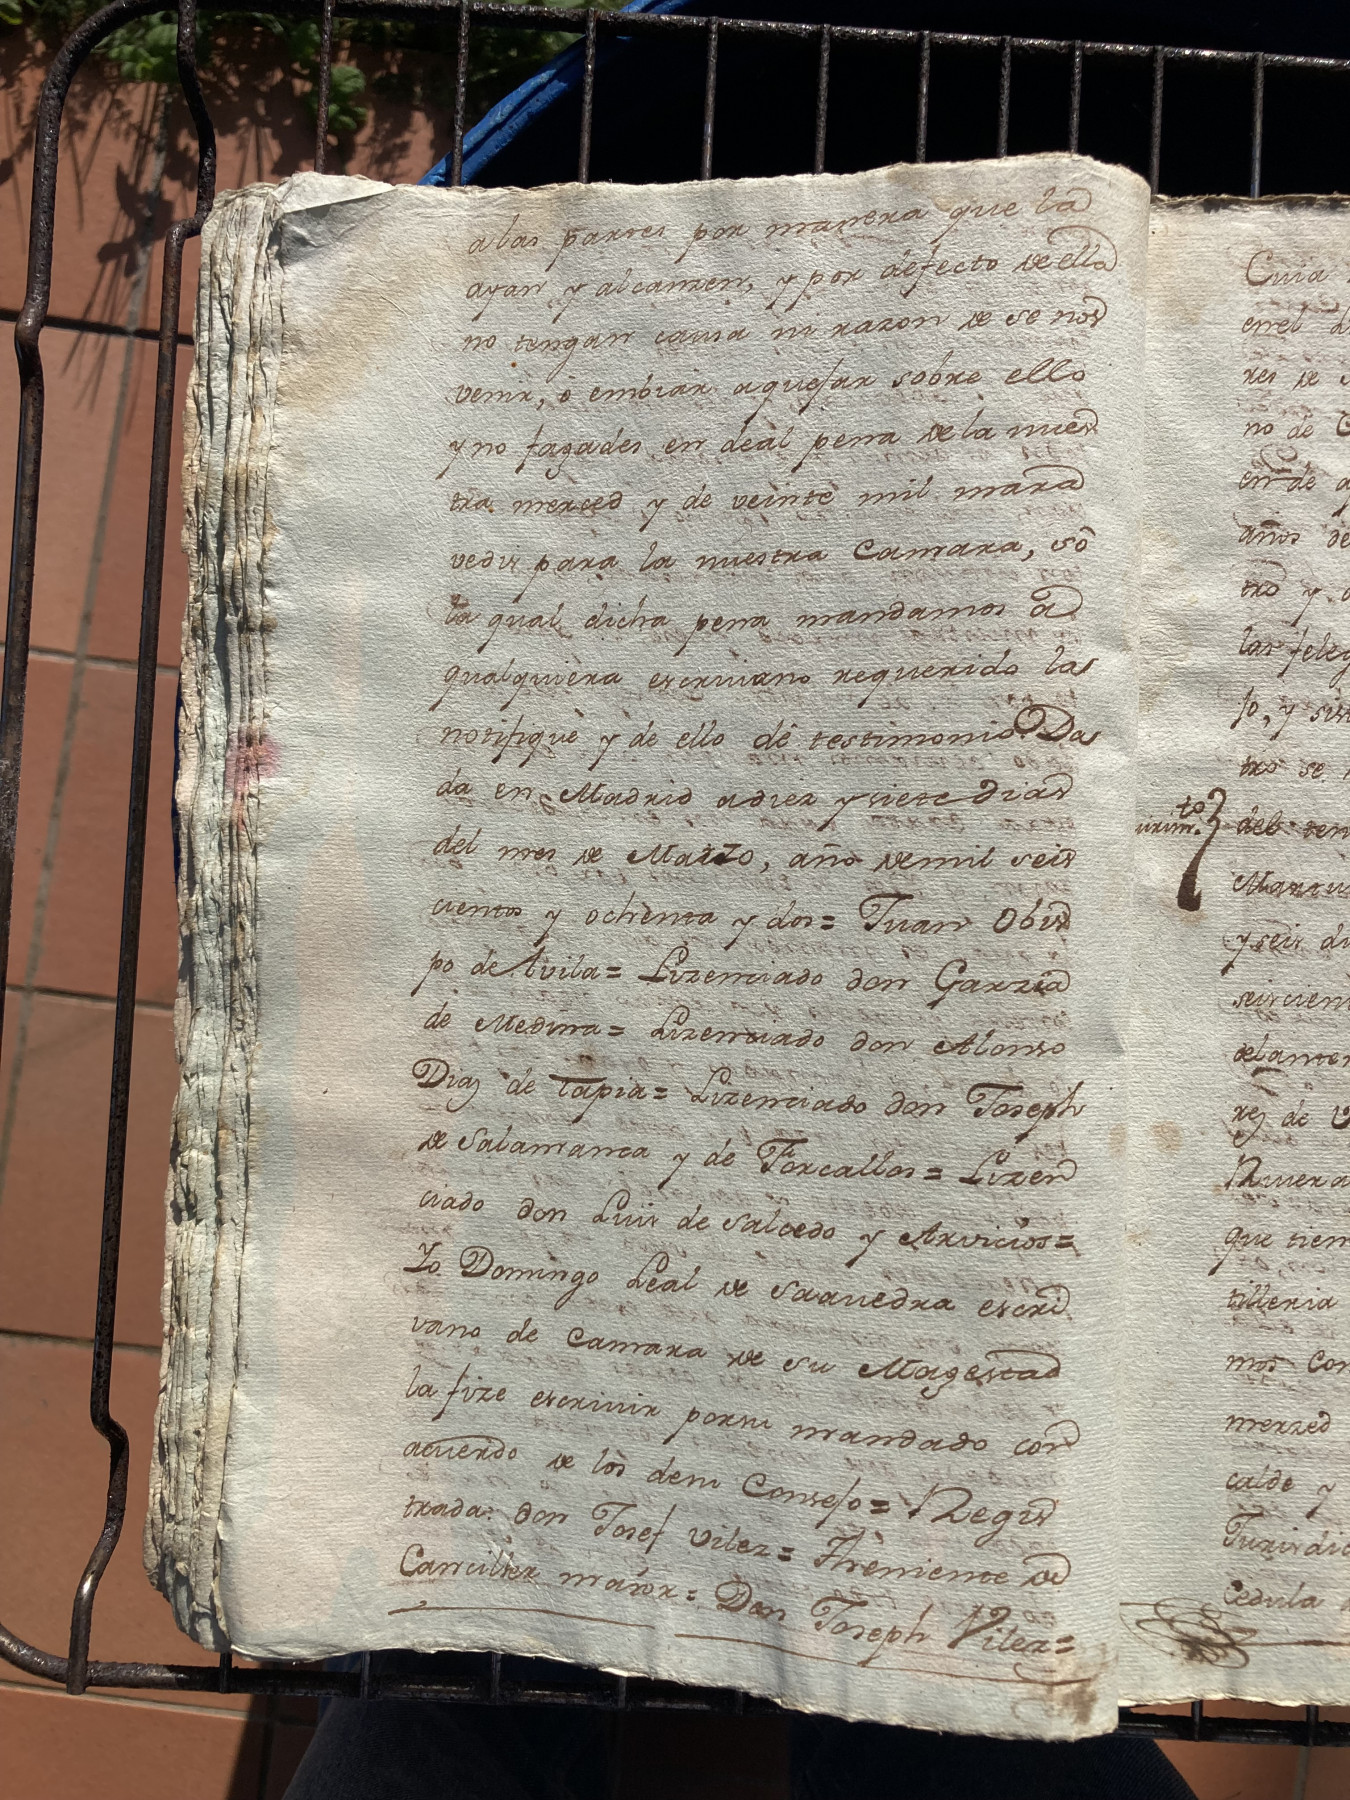 a las partes por manera que la
ayan y alcanzen, y por defecto de ella
no tengan causa ni razon de se nos
venir, ò embiar a quejar sobre ello
y no fagades en deal pena de la nues
tra merced y de veinte mil mara
vedis para la nuestra Camara, sô
la qual dicha pena mandamos â
qualquièra escriuano requerido las
notifiquè y de ello dê testimonio Da
da en Madrid a diez y siete dias
del mes de Marzo, año de mil seis
cientos y ochènta y dos = Juan Obis
po de Avila = Lizenciado don Garzia
de Medina = Lizenciado don Alonso
Diaz de tapia = Lizenciado don Joseph
de Salamanca y de Forcallos = Lizen
ciado don Luis de Salcedo y Arvicios =
Yo Domingo Leal de Saauedra escri
vano de Camara de su Magestad
la fize escriuir por su mandado con
acuerdo de los dem Consejo = Regis
trada: don Josef Vilez = Thèniente de
Canciller maior = Don Joseph Vilez =
Cuia
en el
res de
no de
en de
años de
tro y
las feleg
jo, y sis
tro se
urim.to
del ten
y seis di
seiscient
delanter
rez de V
Riuera
que tien
tilleria
mos Con
merzed
calde y
Jurisdic
Cedula